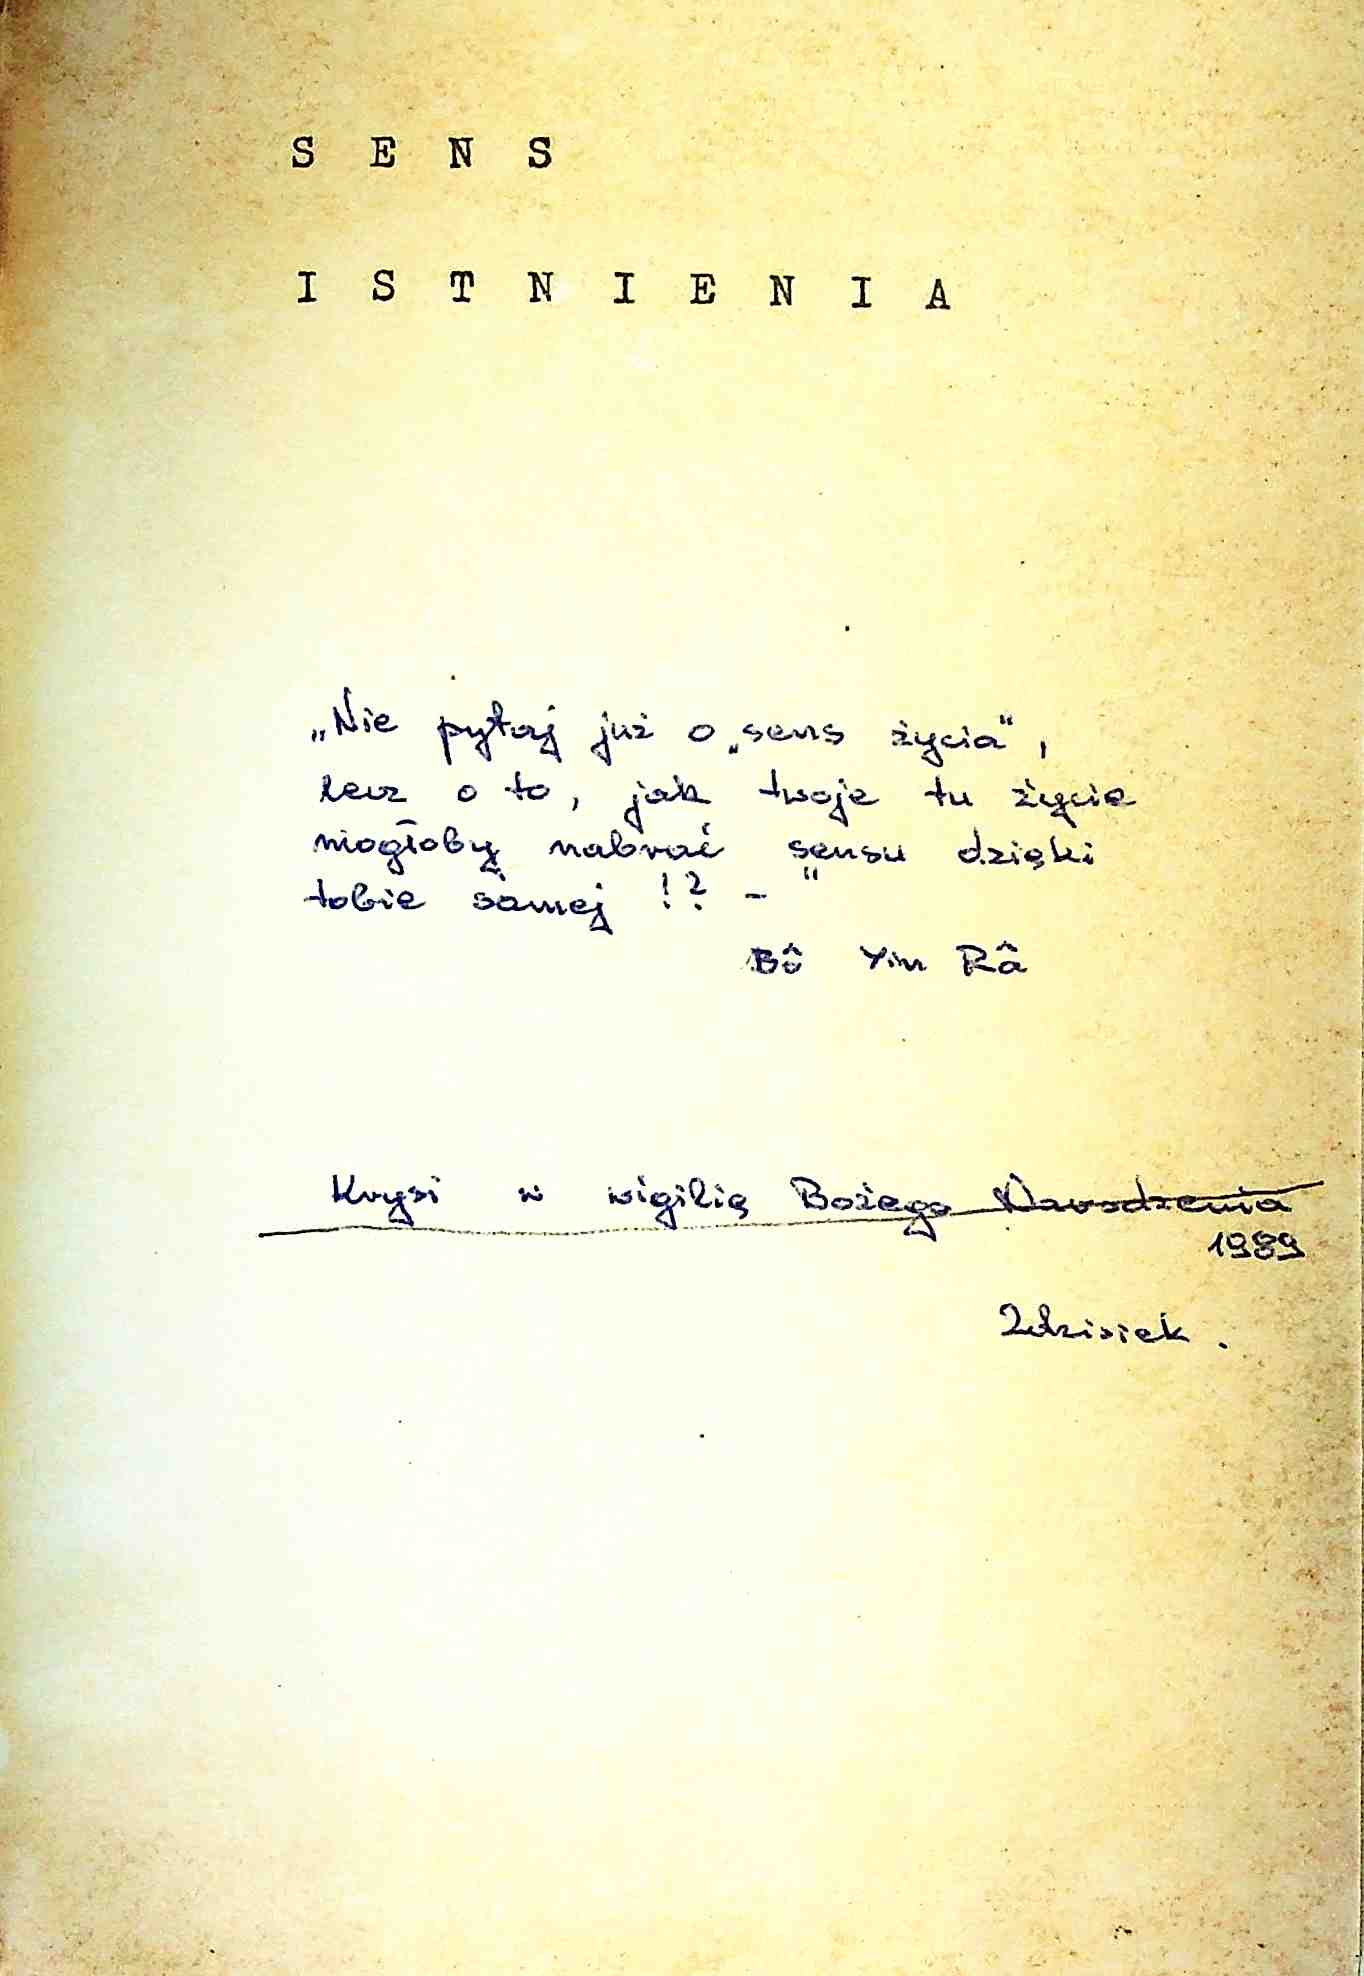 SENS
ISTNIENIA
„Nie pytaj już o „sens życia",
lecz o to, jak twoje tu życie
mogłoby nabrać sensu dzięki
tobie samej !? - "
Bô Yin Râ
Krysi w wigilię Bożego Narodzenia
1989
Zdzisiek.